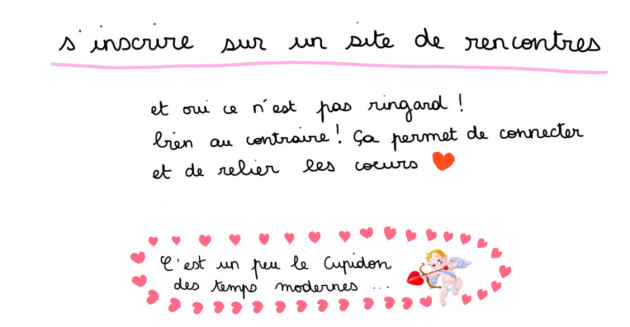 s'inscrire sur un site de rencontres
et oui ce n'est pas ringard !
bien au contraire ! ça permet de connecter
et de relier les coeurs
C'est un peu le Cupidon
des temps modernes ...